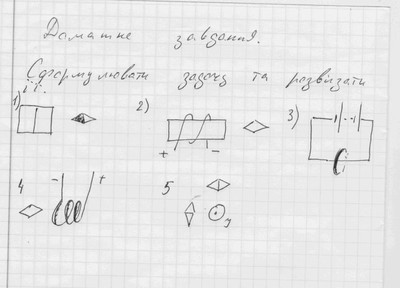 Домашнє завдання.
Сформулювати задачу та розв'язати
її.
1) 2) 3)
+ -
4 - + 5